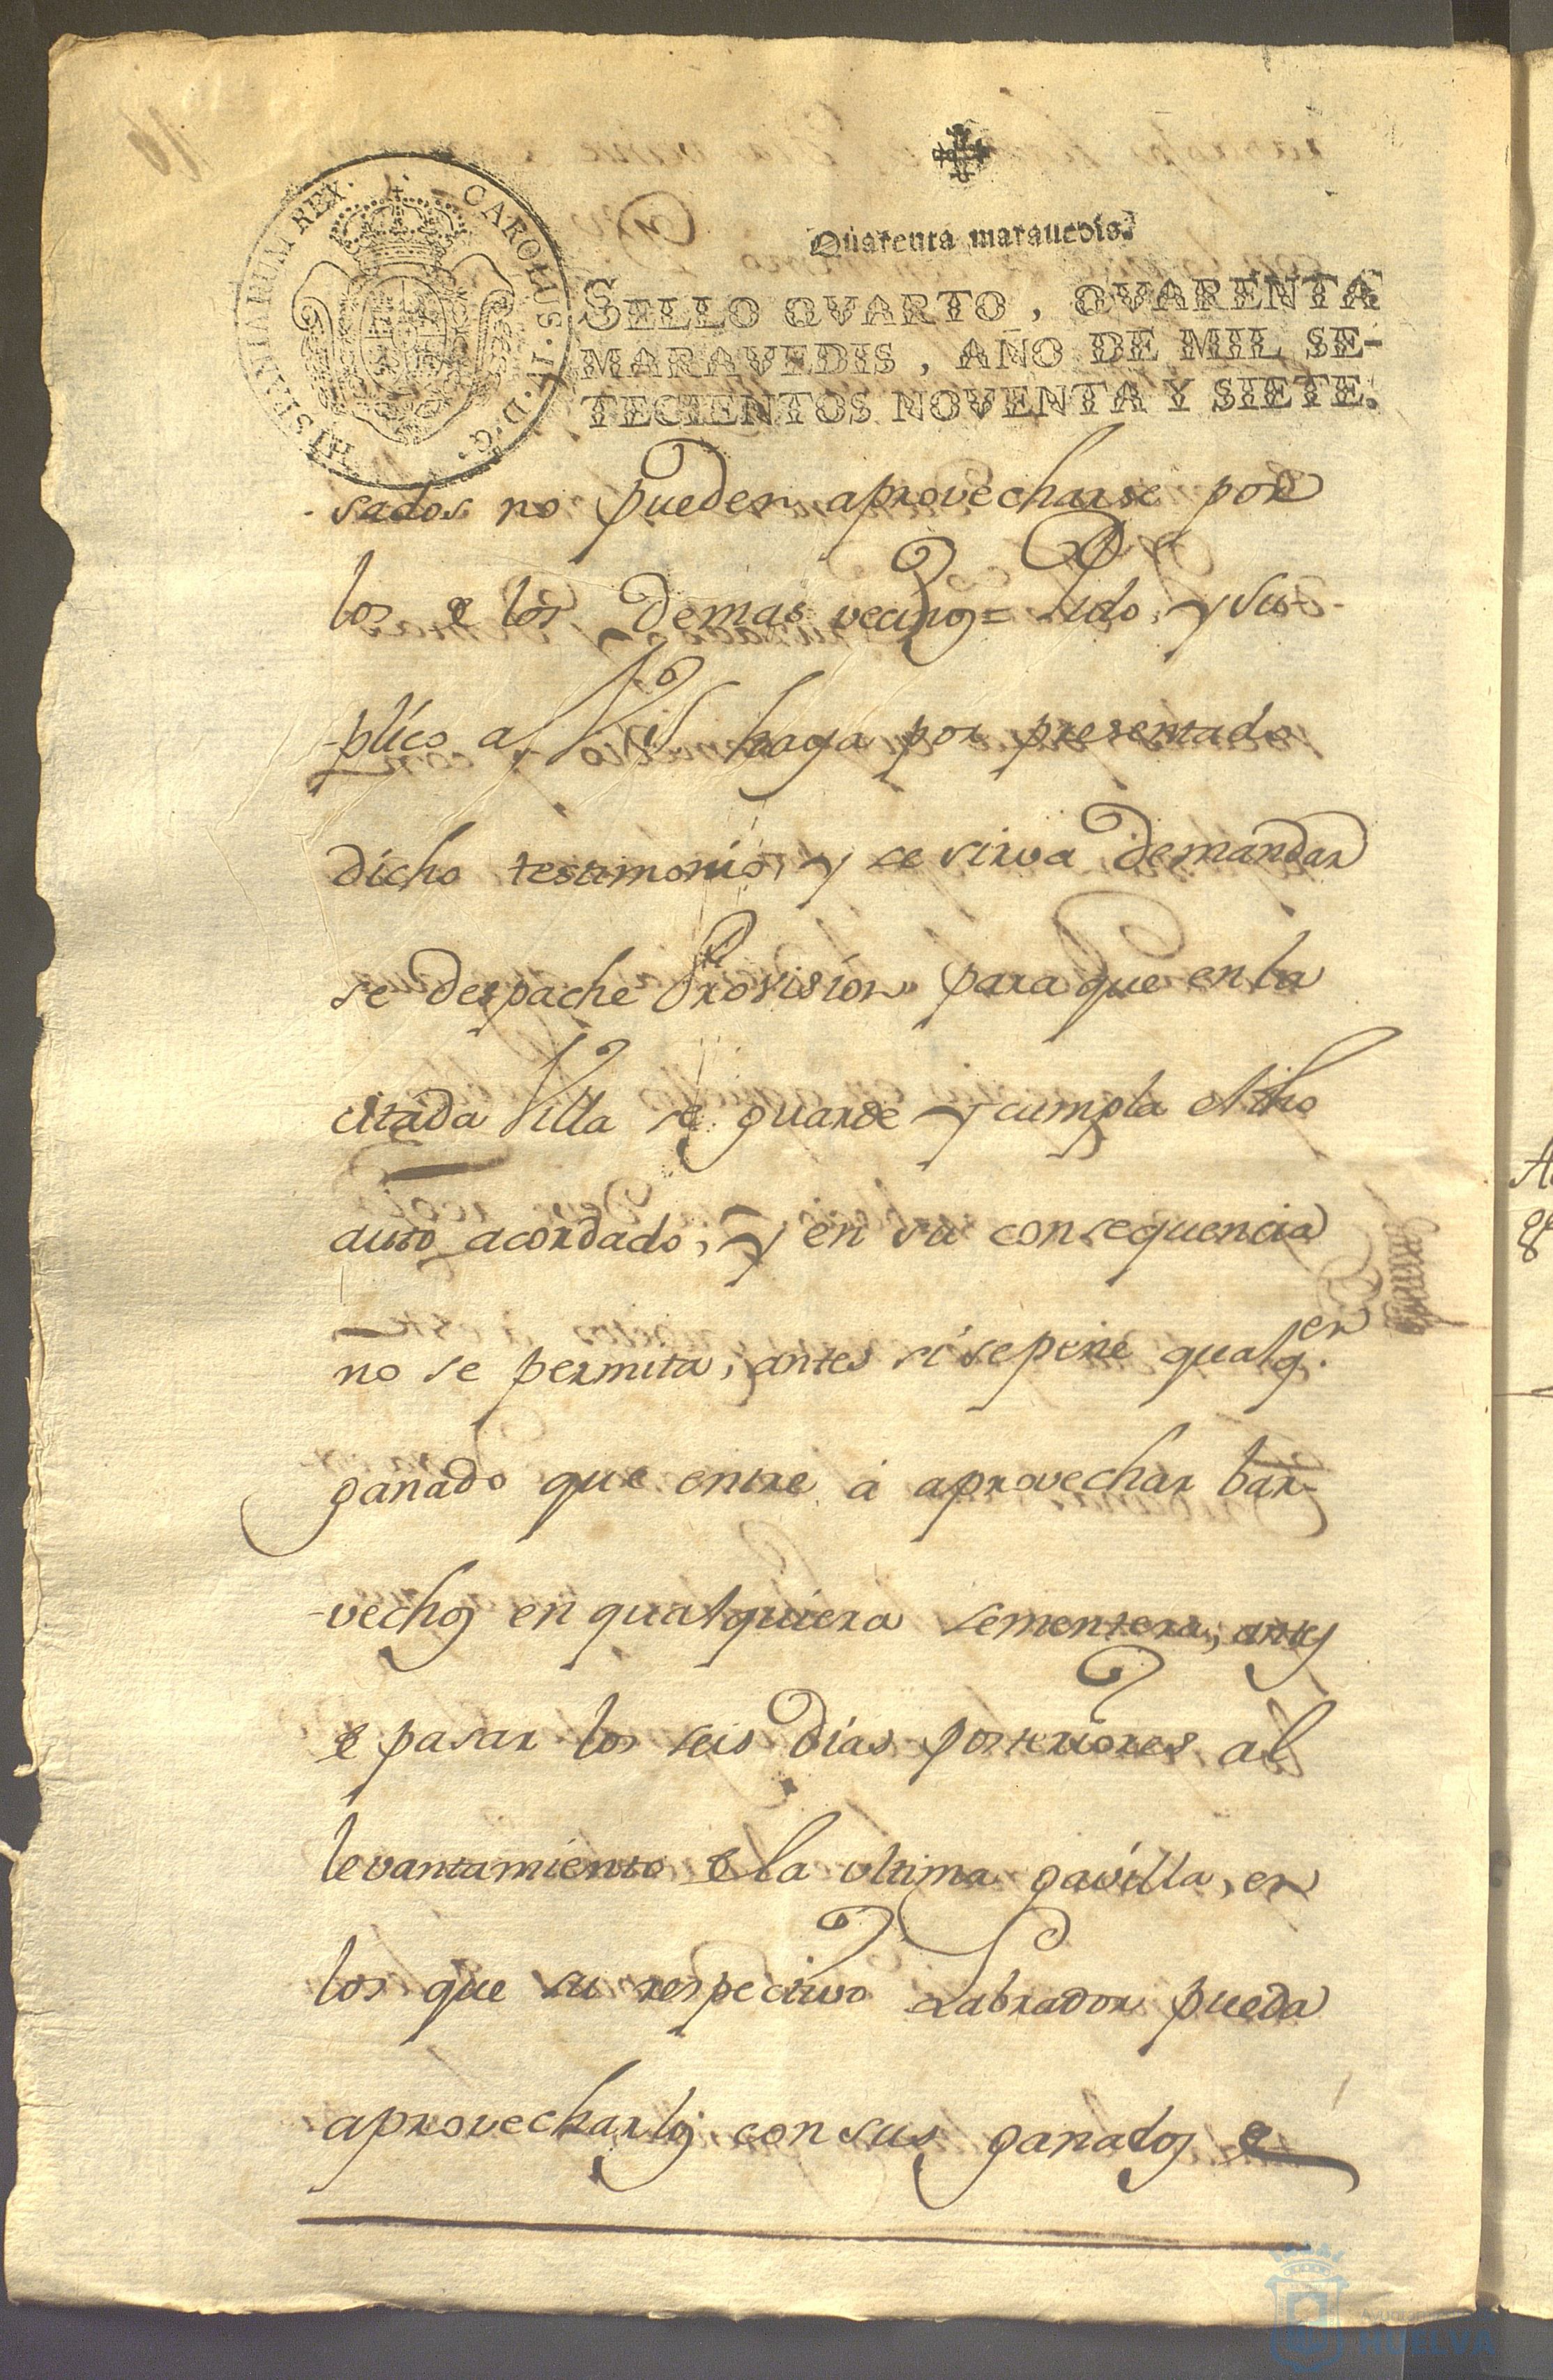 Quarenta maravedis.
CAROLUS IV. D. G. HISPANIARUM REX.
SELLO QVARTO, QVARENTA
MARAVEDIS, AÑO DE MIL SE-
TECIENTOS NOVENTA Y SIETE.
-sados no pueden aprovecharse por
los de los demas vecinos = Pido, y su-
-plíco a V.S. haya por presentado
dicho testimonio, y se sirva demandar
se despache Provision para que en la
citada Villa se guarde y cumpla el dho
auto acordado, y en su consequencia
no se permita, antes sí se pene qualq.er
ganado que entre á aprovechar bar-
-vechos en qualquiera sementera, antes
de pasar los seis dias posteriores al
levantamiento de la ultima gavilla, en
los que su respectivo Labrador pueda
aprovecharlos con sus ganados de
HUELVA